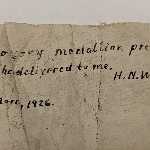 medallion pre
he delivered to me.
H. N. W
1926.